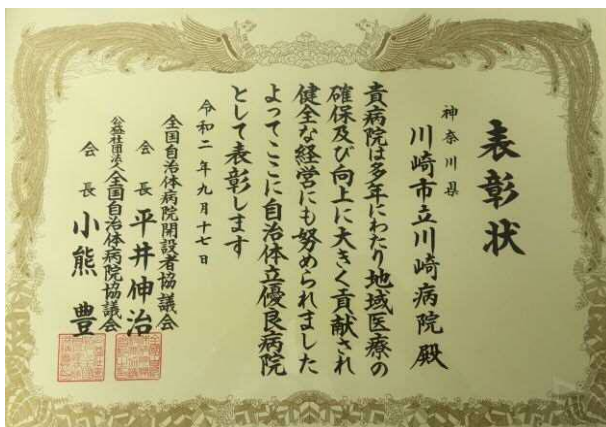 表彰状
神奈川県
川崎市立川崎病院殿
貴病院は多年にわたり地域医療の
確保及び向上に大きく貢献され
健全な経営にも努められました
よってここに自治体立優良病院
として表彰します
令和二年九月十七日
全国自治体病院開設者協議会
会長 平井伸治
公益社団法人全国自治体病院協議会
会長 小熊豊